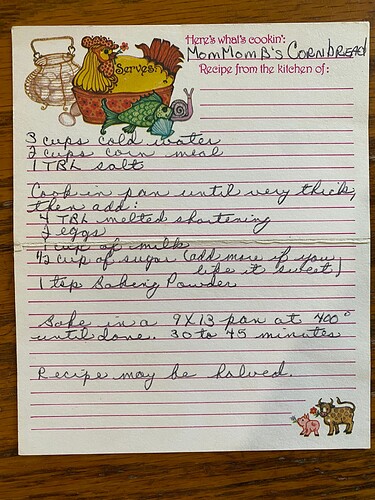 Here's what's cookin':
MomMom B's Cornbread
Serves:
Recipe from the kitchen of:
3 cups cold water
2 cups corn meal
1 TBL salt
Cook in pan until very thick,
then add:
4 TBL melted shortening
2 eggs
1 cup of milk
1/2 cup of sugar (add more if you
like it sweet)
1 tsp Baking Powder
Bake in a 9X13 pan at 400°
until done. 30 to 45 minutes
Recipe may be halved.